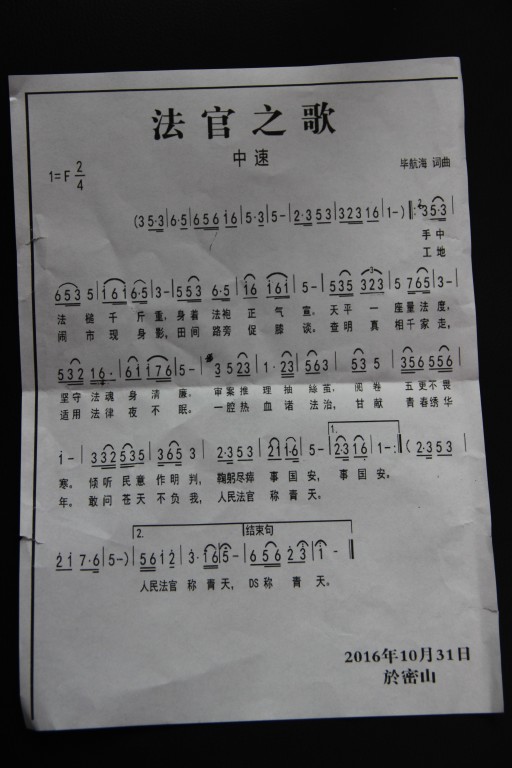 法官之歌
中速
1=F 2/4
毕航海 词曲
(3 5·3 | 6·5 | 6 5 6 i 6 | 5·3 | 5 - | 2·3 5 3 | 3 2 3 1 6 | 1 - ) |: 3 5·3 |
手中
工地
6 5 3 5 | i 6 i 6·5 | 3 - | 5 5 3 6·5 | i 6 i 6 i | 5 - | 5 3 5 3 2 3 | 5 7 6 5 |
法槌千斤重,身着法袍正气宣。天平一座量法度,
闹市现身影,田间路旁促膝谈,查明真相千家走,
5 3 2 1 6· | 6 i i 7 6 | 5 - | 3 5 2 3 | 1· 2 3 | 5 6 3 | 5 3 5 | 3 5 6 5 5 6 |
坚守法魂身清廉。审案推理抽絲茧,阅卷五更不畏
适用法律夜不眠。一腔热血诸法治,甘献青春绣华
i - | 3 3 2 5 3 5 | 3 6 5 3 | 2·3 5 3 | 2 1 i 6 | 5 - | 1. 2·3 1 6 | 1 - :| ( 2·3 5 3 |
寒。倾听民意作明判,鞠躬尽瘁事国安,事国安。
年。敢问苍天不负我,人民法官称青天。
2 i 7·6 | 5 - ) | 2. 5 6 i 2 | 3· i 6 | 5 - | 结束句 6 5 6 2 3 | i - ||
人民法官称青天,DS称青天。
2016年10月31日
於密山